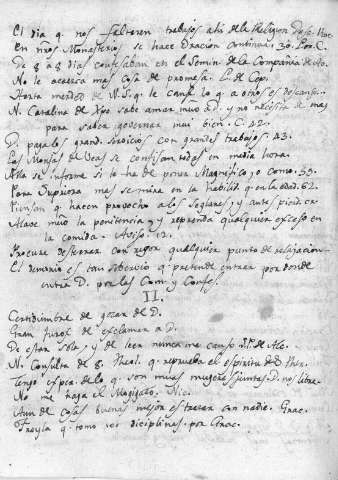 El dia q. nos faltaren trabajos
En nros Monasterios se hace Oracion continua. 30. Por C.
De 8 a 8 dias confesaban en el Semin. de la Compañia de
No le acaezca mas cosa de promesa.
Harta merded de N. S. q. le canse lo q a otros es descanso.
N. Catalina de Xpo. sabe amar mũo a D. y no necesita de mas
para saber governar mui bien. C. 42.
D. paga los grand. servicios con grandes trabajos. 43.
Las Monjas de Veas se confisan todas en media hora.
Alla se informe si lo ha de poner Magnifico, o como. 59.
Para Supriora mas se mira en la habilid. q en la edad. 62.
Piensan q hacen provecho a los Seglares, y antes
Alave mũo la penitencia, y reprenda qualquier exceso en
la comida. Aviso. 12.
Procure desterrar con rigor qualquier punto de relajacion.
El demonio es tan sobervio q. pretende entrar por donde
entra D. por las Com. y Confes.
II.
Certidumbre de gozar de D.
Gran furor de exclamar a D.
De estar sola, y de leer nunca me canso.
N. Consulta de 8. Theol. q. reprueba el espiritu de
Tengo expca. de lo q. son muas mugeres juntas. D. nos libre.
No me haga el Magigato. Nic.
Aun de cosas buenas mejor es tratar con nadie. Grac.
Freyla q. toma tres diciplinas. por Grac.